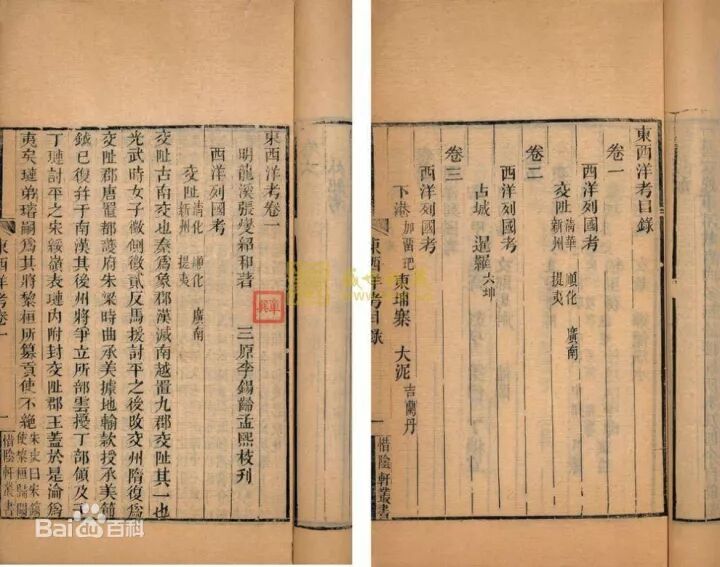 東西洋考目錄
卷一
西洋列國考
交阯 清華 順化 廣南
新州 提夷
卷二
西洋列國考
古城 暹羅 六坤
卷三
西洋列國考
下港 加留吧 柬埔寨 大泥 吉蘭丹
東西洋考目录
一
惜陰軒叢書
東西洋考卷一
明龍溪張燮紹和著 三原李錫齡孟熙校刊
西洋列國考
交阯 清化 順化 廣南
新州 提夷
交阯古南交也秦為象郡漢滅南越置九郡交阯其一也
光武時女子徵側徵貳反馬援討平之後改交州隋復為
交阯郡唐置都護府朱梁時曲承美據地輸款授承美節
鉞已復并于南漢其後州將爭立所部雲擾丁部領及子
丁璉討平之宋綏嶺表璉內附封交阯郡王蓋於是淪為
夷矣璉弟璿嗣為其將黎桓所篡貢使不絕 宋史曰宋鎬
使黎桓歸闕
東西洋考卷一
一
惜陰軒叢書
Baidu百科